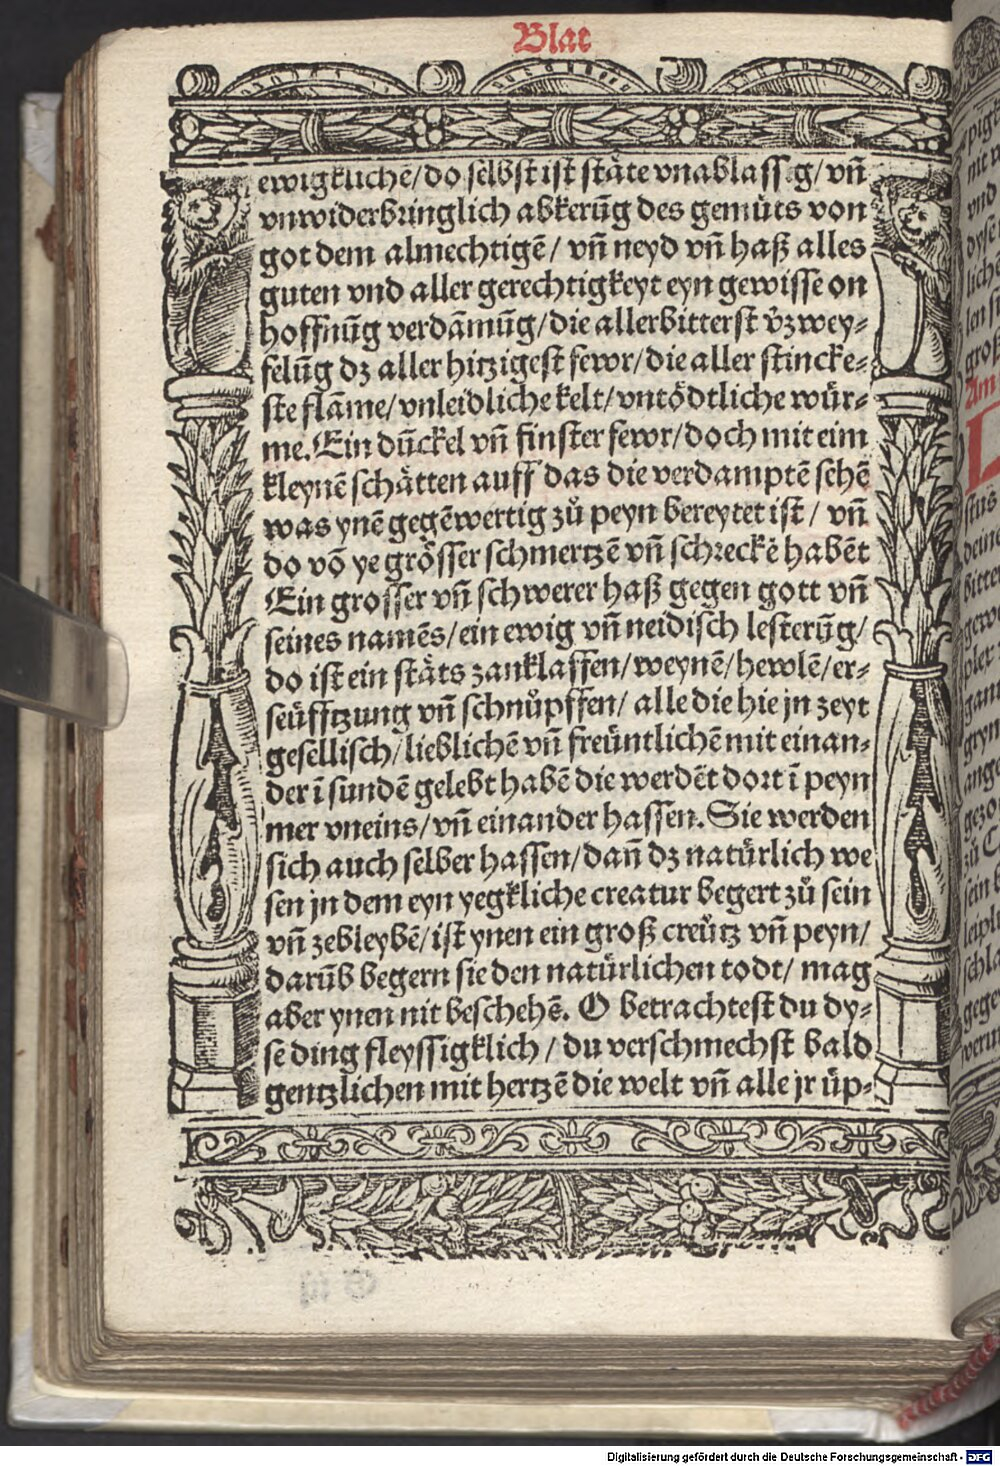 Blat
ewigkliche/do selbst ist stäte vnablassig/vñ
vnwiderbringlich abkerūg des gemüts von
got dem almechtigē/ vñ neyd vñ haß alles
guten vnd aller gerechtigkeyt eyn gewisse on
hoffnūg verdāmūg/die allerbitterst v̓zwey⸗
felūg dz aller hitzigest fewr/die aller stincke⸗
ste flāme/vnleidliche kelt/vntödtliche wür⸗
me. Ein dūckel vñ finster fewr/doch mit eim
kleynē schätten auff das die verdamptē sehē
was ynē gegēwertig zů peyn bereytet ist/ vñ
do vō ye grösser schmertzē vñ schreckē habēt
Ein grosser vñ schwerer haß gegen gott vñ
seines namēs/ein ewig vñ neidisch lesterūg/
do ist ein stäts zanklaffen/weynē/hewlē/er⸗
seüfftzung vñ schnůpffen/ alle die hie jn zeyt
gesellisch/lieblichē vñ freüntlichē mit einan⸗
der ī sundē gelebt habē die werdēt dort ī peyn
mer vneins/vñ einander hassen. Sie werden
sich auch selber hassen/dañ dz natürlich we
sen jn dem eyn yegkliche creatur begert zů sein
vñ zebleybē/ist ynen ein groß creütz vñ peyn/
darūb begern sie den natürlichen todt/ mag
aber ynen nit beschehē. O betrachtest du dy⸗
se ding fleyssigklich/du verschmechst bald
gentzlichen mit hertzē die welt vñ alle jr üp⸗
Digitalisierung gefördert durch die Deutsche Forschungsgemeinschaft - DFG